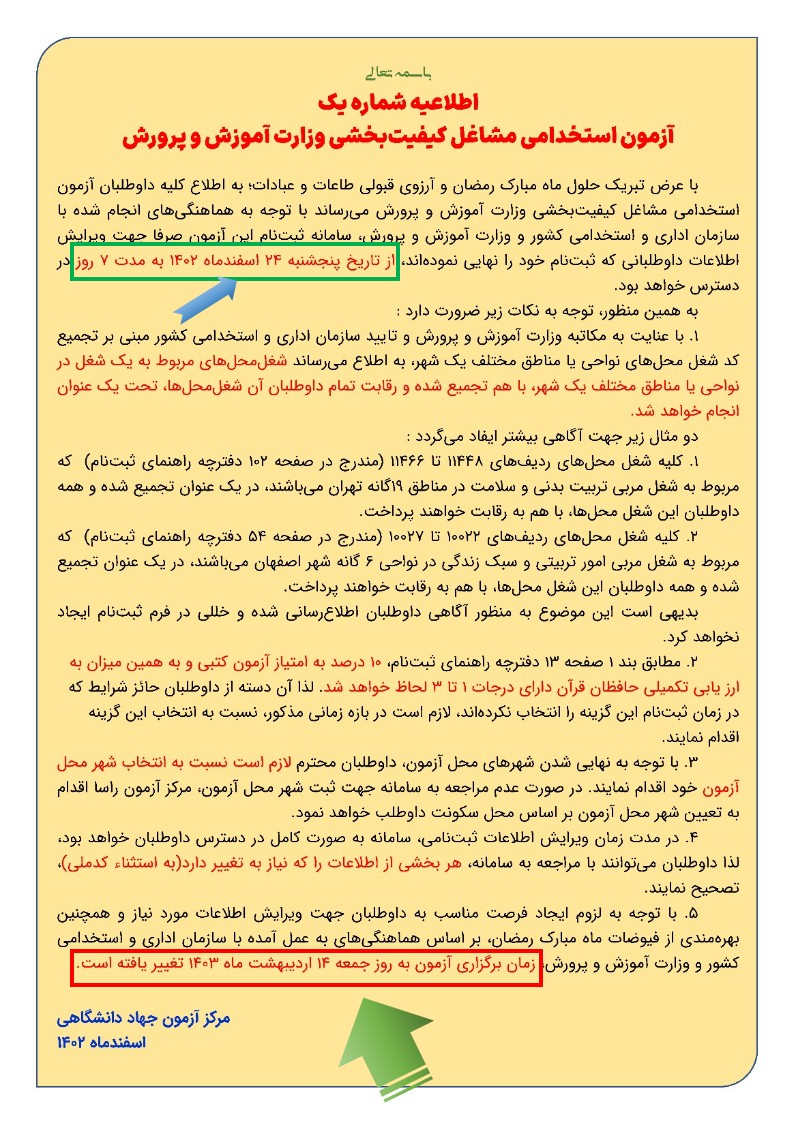 باسمه تعالی
اطلاعیه شماره یک
آزمون استخدامی مشاغل کیفیت‌بخشی وزارت آموزش و پرورش
با عرض تبریک حلول ماه مبارک رمضان و آرزوی قبولی طاعات و عبادات؛ به اطلاع کلیه داوطلبان آزمون
استخدامی مشاغل کیفیت‌بخشی وزارت آموزش و پرورش می‌رساند با توجه به هماهنگی‌های انجام شده با
سازمان اداری و استخدامی کشور و وزارت آموزش و پرورش، سامانه ثبت‌نام این آزمون صرفا جهت ویرایش
اطلاعات داوطلبانی که ثبت‌نام خود را نهایی نموده‌اند، از تاریخ پنجشنبه ۲۴ اسفندماه ۱۴۰۲ به مدت ۷ روز در
دسترس خواهد بود.
به همین منظور، توجه به نکات زیر ضرورت دارد :
۱. با عنایت به مکاتبه وزارت آموزش و پرورش و تایید سازمان اداری و استخدامی کشور مبنی بر تجمیع
کد شغل محل‌های نواحی یا مناطق مختلف یک شهر، به اطلاع می‌رساند شغل‌محل‌های مربوط به یک شغل در
نواحی یا مناطق مختلف یک شهر، با هم تجمیع شده و رقابت تمام داوطلبان آن شغل‌محل‌ها، تحت یک عنوان
انجام خواهد شد.
دو مثال زیر جهت آگاهی بیشتر ایفاد می‌گردد :
۱. کلیه شغل محل‌های ردیف‌های ۱۱۴۴۸ تا ۱۱۴۶۶ (مندرج در صفحه ۱۰۲ دفترچه راهنمای ثبت‌نام) که
مربوط به شغل مربی تربیت بدنی و سلامت در مناطق ۱۹گانه تهران می‌باشند، در یک عنوان تجمیع شده و همه
داوطلبان این شغل محل‌ها، با هم به رقابت خواهند پرداخت.
۲. کلیه شغل محل‌های ردیف‌های ۱۰۰۲۲ تا ۱۰۰۲۷ (مندرج در صفحه ۵۴ دفترچه راهنمای ثبت‌نام) که
مربوط به شغل مربی امور تربیتی و سبک زندگی در نواحی ۶ گانه شهر اصفهان می‌باشند، در یک عنوان تجمیع
شده و همه داوطلبان این شغل محل‌ها، با هم به رقابت خواهند پرداخت.
بدیهی است این موضوع به منظور آگاهی داوطلبان اطلاع‌رسانی شده و خللی در فرم ثبت‌نام ایجاد
نخواهد کرد.
۲. مطابق بند ۱ صفحه ۱۳ دفترچه راهنمای ثبت‌نام، ۱۰ درصد به امتیاز آزمون کتبی و به همین میزان به
ارز یابی تکمیلی حافظان قرآن دارای درجات ۱ تا ۳ لحاظ خواهد شد. لذا آن دسته از داوطلبان حائز شرایط که
در زمان ثبت‌نام این گزینه را انتخاب نکرده‌اند، لازم است در بازه زمانی مذکور، نسبت به انتخاب این گزینه
اقدام نمایند.
۳. با توجه به نهایی شدن شهرهای محل آزمون، داوطلبان محترم لازم است نسبت به انتخاب شهر محل
آزمون خود اقدام نمایند. در صورت عدم مراجعه به سامانه جهت ثبت شهر محل آزمون، مرکز آزمون راسا اقدام
به تعیین شهر محل آزمون بر اساس محل سکونت داوطلب خواهد نمود.
۴. در مدت زمان ویرایش اطلاعات ثبت‌نامی، سامانه به صورت کامل در دسترس داوطلبان خواهد بود،
لذا داوطلبان می‌توانند با مراجعه به سامانه، هر بخشی از اطلاعات را که نیاز به تغییر دارد(به استثناء کدملی)،
تصحیح نمایند.
۵. با توجه به لزوم ایجاد فرصت مناسب به داوطلبان جهت ویرایش اطلاعات مورد نیاز و همچنین
بهره‌مندی از فیوضات ماه مبارک رمضان، بر اساس هماهنگی‌های به عمل آمده با سازمان اداری و استخدامی
کشور و وزارت آموزش و پرورش، زمان برگزاری آزمون به روز جمعه ۱۴ اردیبهشت ماه ۱۴۰۳ تغییر یافته است.
مرکز آزمون جهاد دانشگاهی
اسفندماه ۱۴۰۲